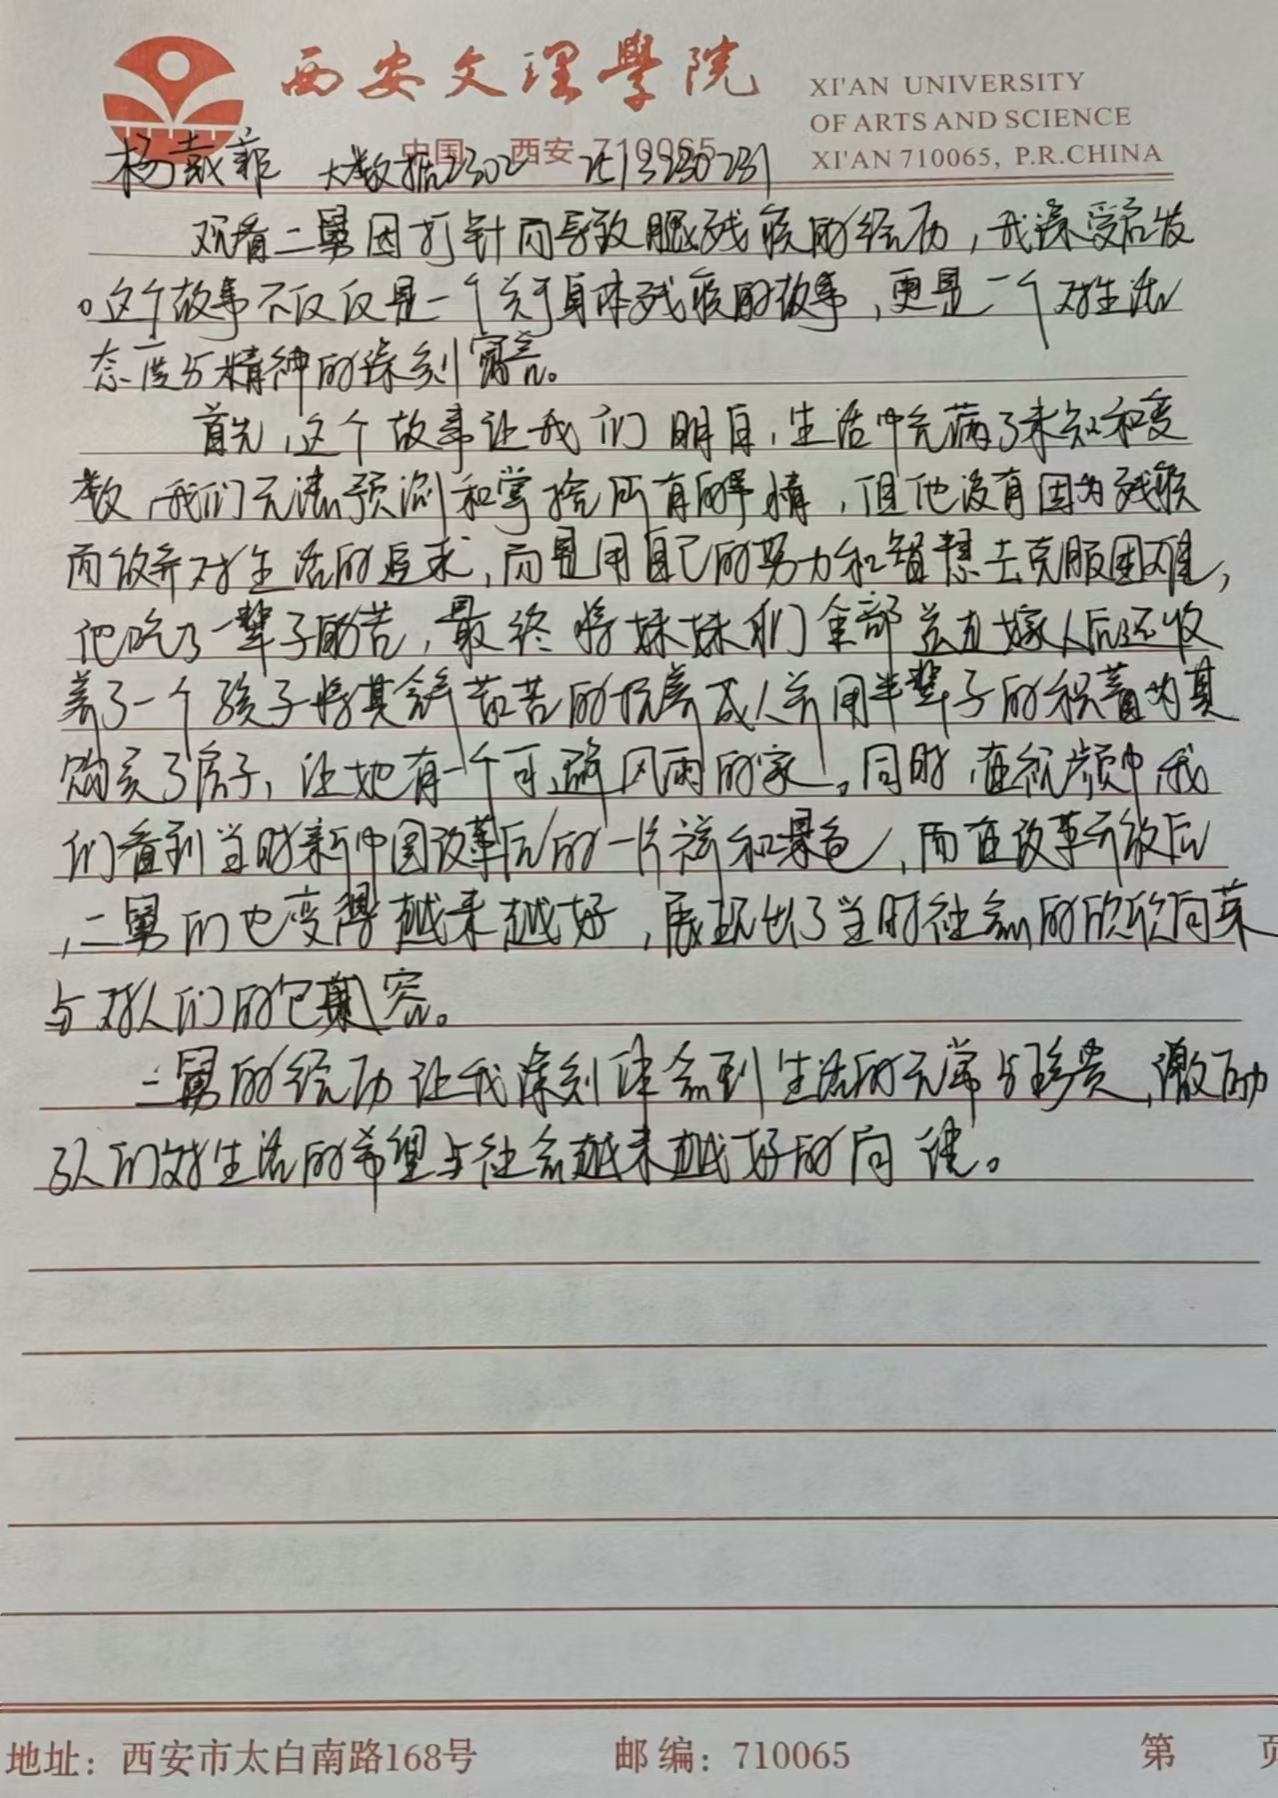 西安文理學院
XI'AN UNIVERSITY
OF ARTS AND SCIENCE
中国 西安 710065
XI'AN 710065, P.R.CHINA
杨 大数据2302 2513230231
观看二舅因打针而导致腿残疾的经历，我深受启发
。这个故事不仅仅是一个关于身体残疾的故事，更是一个对生活
态度与精神的深刻寓言。
首先，这个故事让我们明白，生活中充满了未知和变
数，我们无法预测和掌控所有的事情，但他没有因为残疾
而放弃对生活的追求，而是用自己的努力和智慧去克服困难，
他吃了一辈子的苦，最终将妹妹们全部嫁人后还收
养了一个孩子将其含辛茹苦的抚养成人并用半辈子的积蓄为其
购买了房子，让她有一个可避风雨的家。同时，在视频中，我
们看到当时新中国改革后的一片祥和景色，而在改革开放后
，二舅们也变得越来越好，展现出了当时社会的欣欣向荣
与对人们的包容。
二舅的经历让我深刻体会到生活的无常与珍贵，激励
人们对生活的希望与社会越来越好的向往。
地址：西安市太白南路168号 邮编：710065 第 页